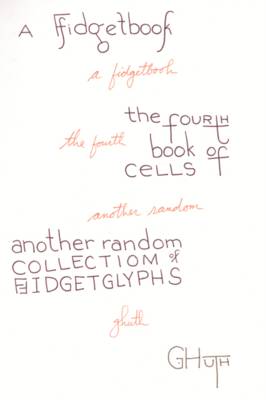 A Fidgetbook
a fidgetbook
the fourth
the fourth
book of
CELLS
another random
another random
COLLECTIOM of
FIDGETGLYPHS
ghuth
GHUTH